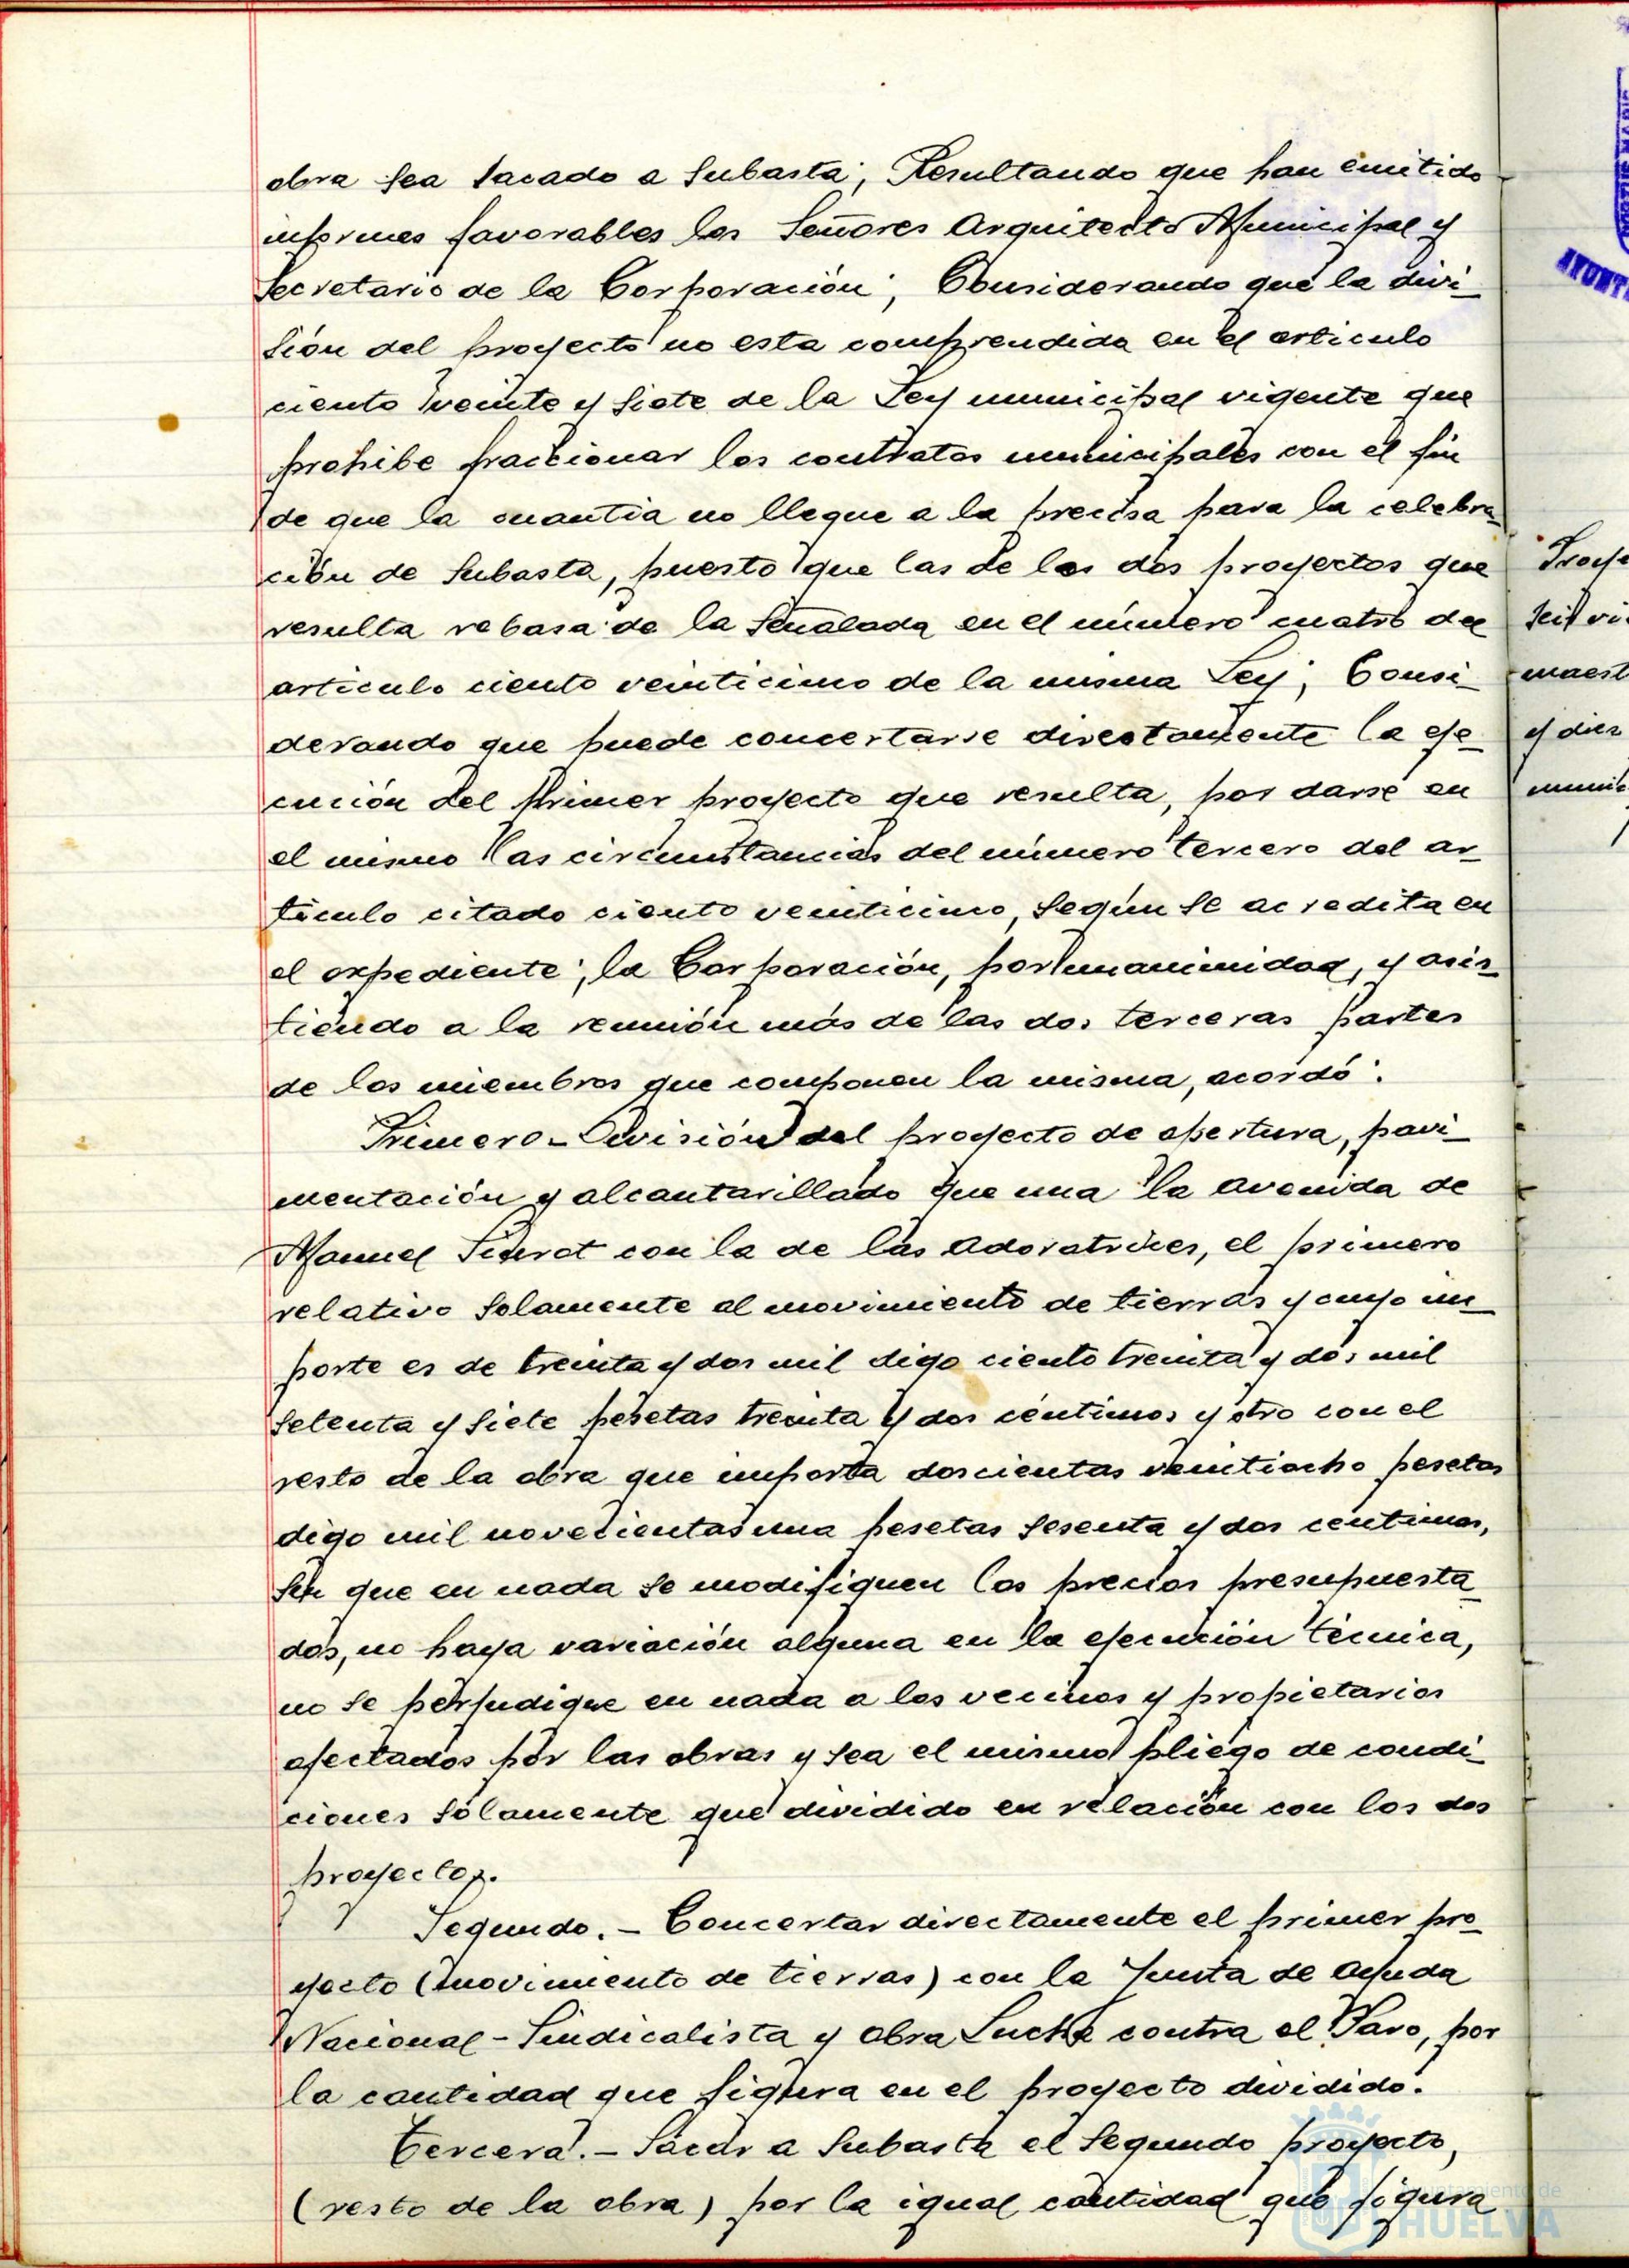 obra sea sacado a subasta; Resultando que han emitido
informes favorables los Señores Arquitecto Municipal y
Secretario de la Corporación; Considerando que la divi-
sión del proyecto no esta comprendida en el articulo
ciento veinte y siete de la Ley municipal vigente que
prohibe fraccionar los contratos municipales con el fin
de que la cuantia no llegue a la precisa para la celebra-
ción de subasta, puesto que las de los dos proyectos que
resulta rebasa de la señalada en el número cuatro del
articulo ciento veinticinco de la misma Ley; Consi-
derando que puede concertarse directamente la eje-
cución del primer proyecto que resulta, por darse en
el mismo las circunstancias del número tercero del ar-
tículo citado ciento veinticinco, según se acredita en
el expediente; la Corporación, por unanimidad, y asis-
tiendo a la reunión más de las dos terceras partes
de los miembros que componen la misma, acordó:
Primero - División del proyecto de apertura, pavi-
mentación y alcantarillado que una la avenida de
Manuel Siurot con la de las Adoratrices, el primero
relativo solamente al movimiento de tierras y cuyo im-
porte es de treinta y dos mil digo ciento treinta y dos mil
setenta y siete pesetas treinta y dos céntimos y otro con el
resto de la obra que importa doscientas veintiocho pesetas
digo mil novecientas una pesetas sesenta y dos centimos,
sin que en nada se modifiquen los precios presupuesta-
dos, no haya variación alguna en la ejecución técnica,
no se perjudique en nada a los vecinos y propietarios
afectados por las obras y sea el mismo pliego de condi-
ciones sólamente que dividido en relación con los dos
proyectos.
Segundo. - Concertar directamente el primer pro-
yecto (movimiento de tierras) con la Junta de Ayuda
Nacional-Sindicalista y Obra Lucha contra el Paro, por
la cantidad que figura en el proyecto dividido.
Tercera. - Sacar a subasta el segundo proyecto,
(resto de la obra) por la igual cantidad que figura
Ayuntamiento de
HUELVA